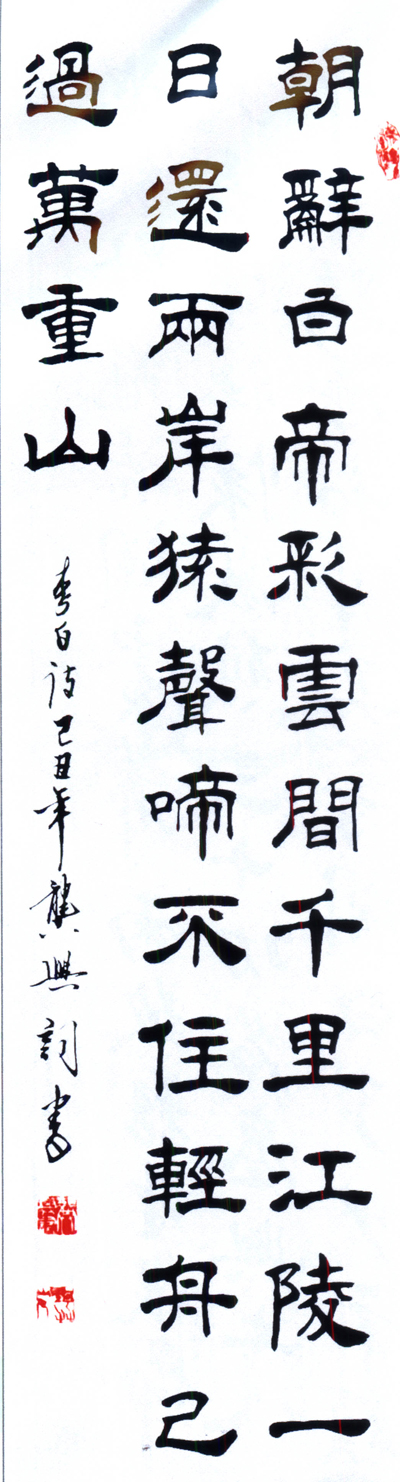 朝辭白帝彩雲間千里江陵一
日還兩岸猿聲啼不住輕舟已
過萬重山
李白詩己丑年龔興詞書